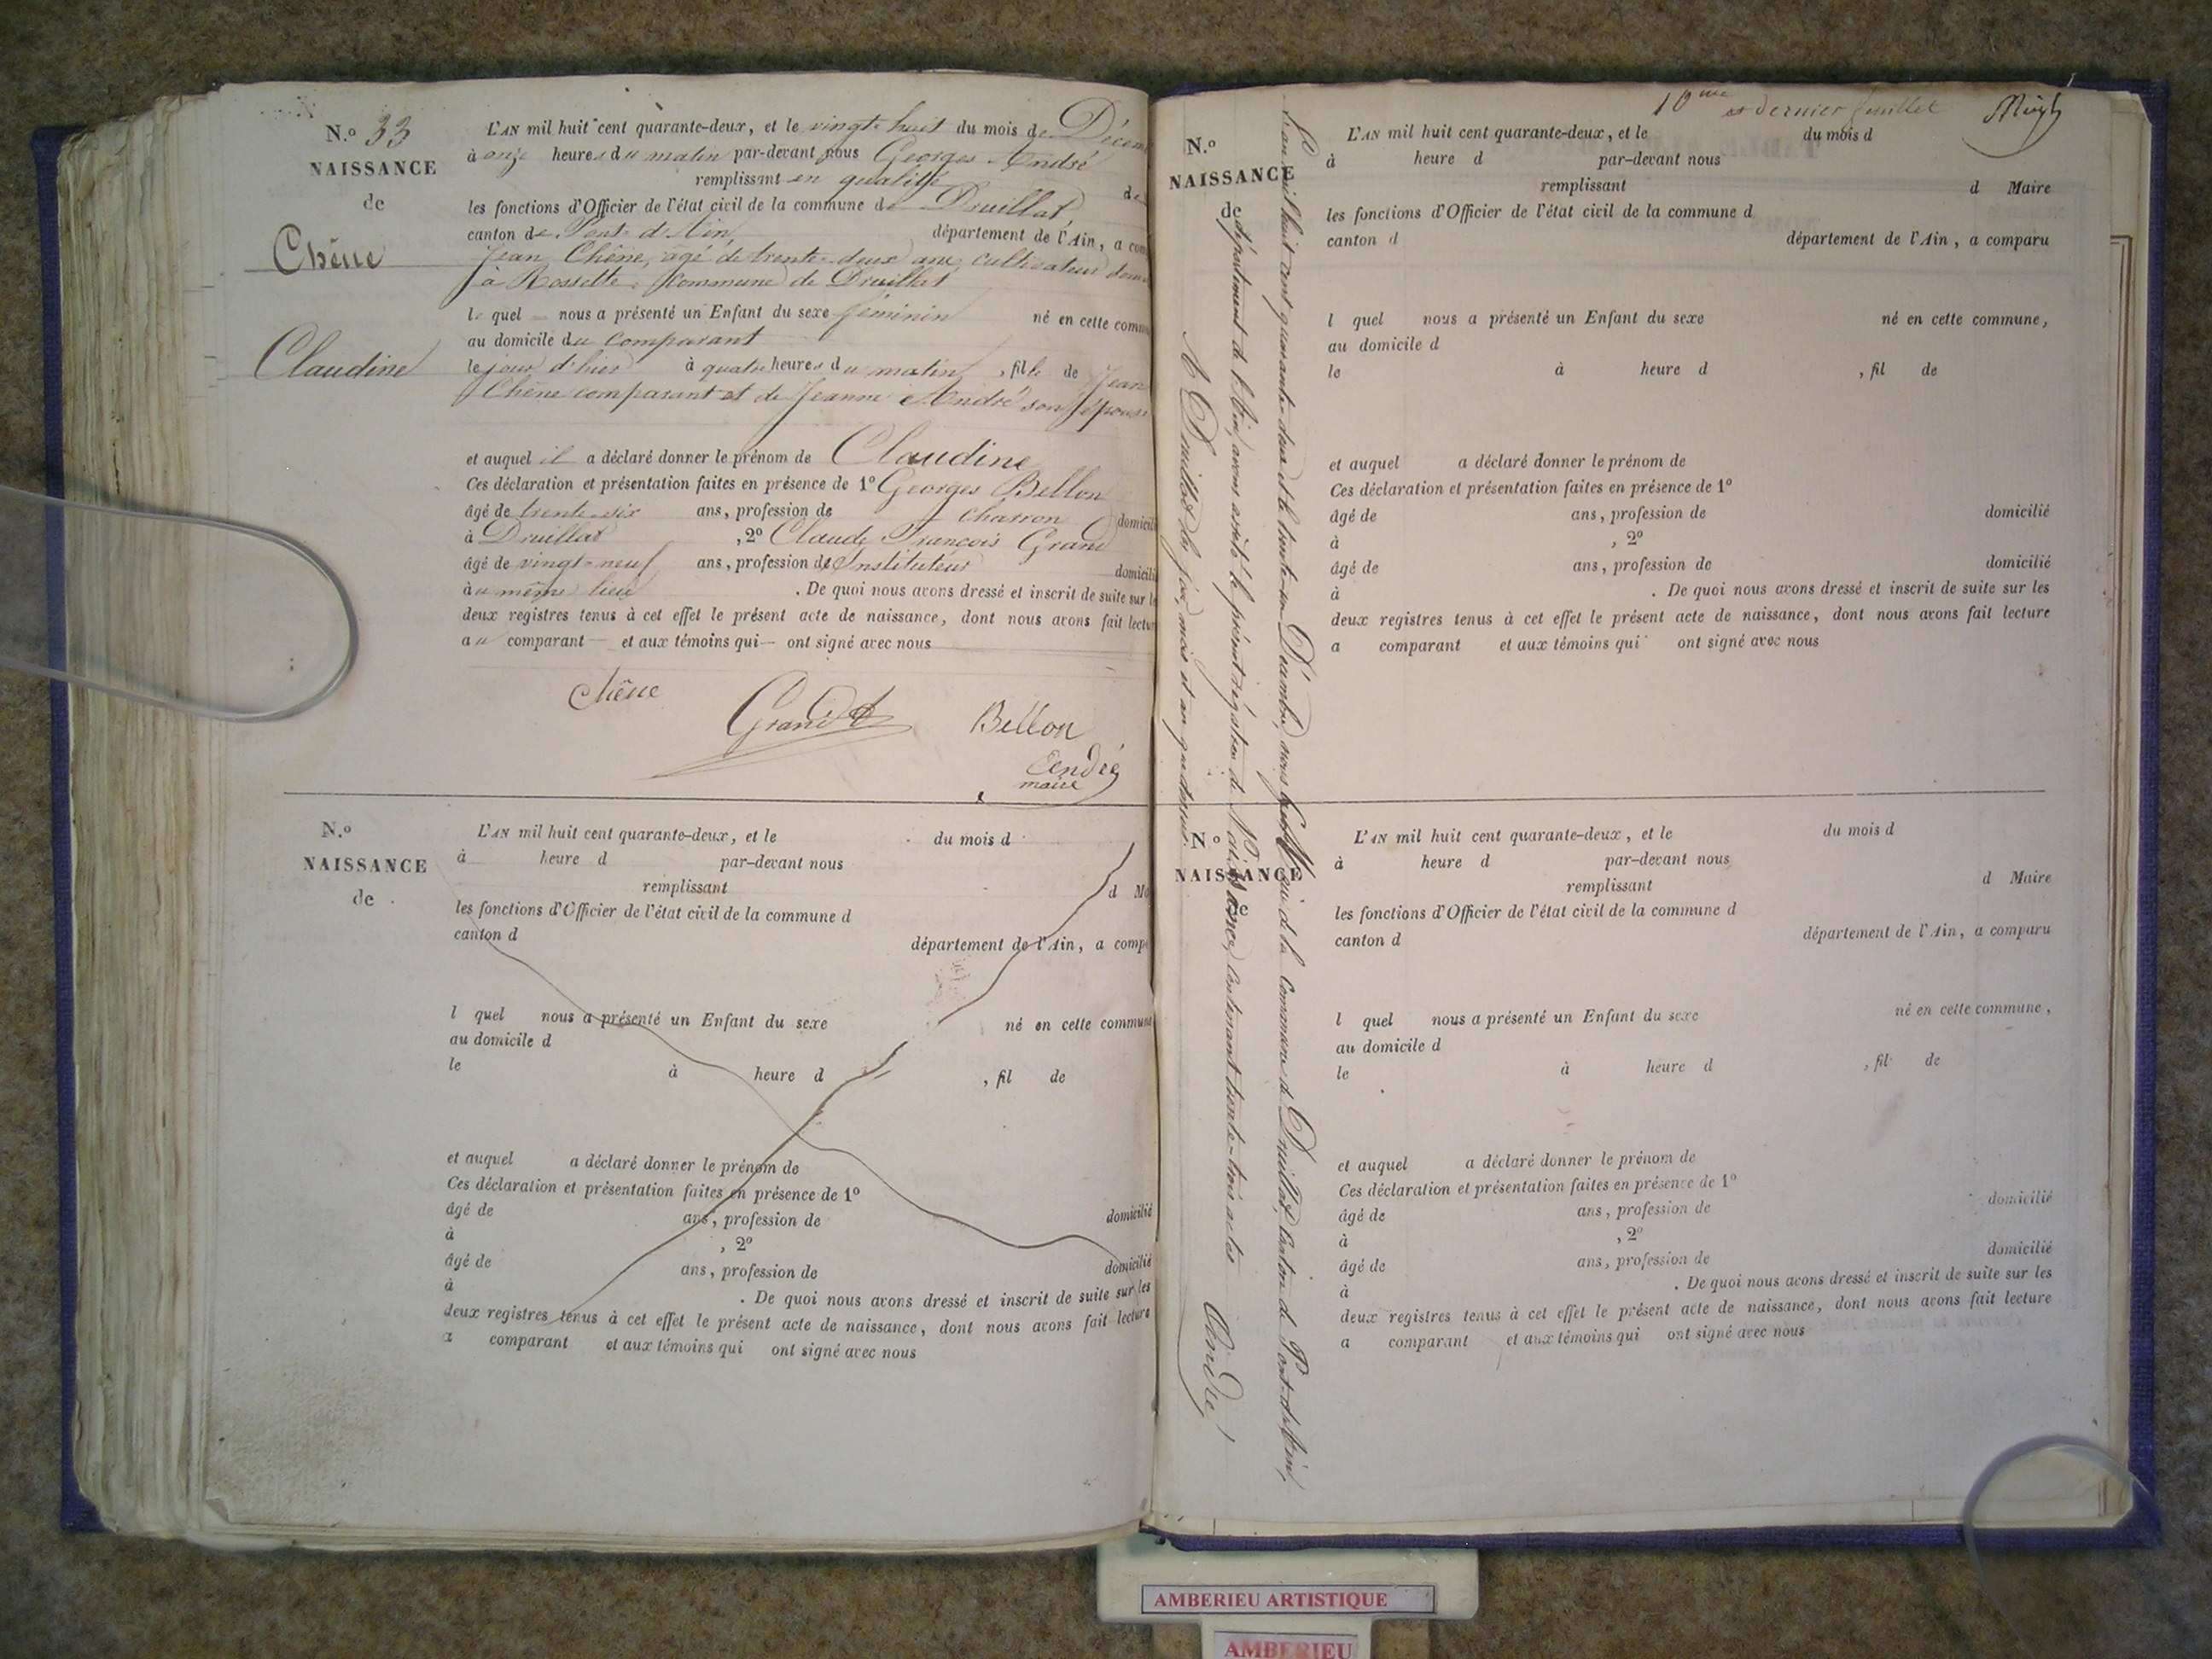 N.º 33
NAISSANCE
de
Chêne
Claudine
L'AN mil huit cent quarante-deux, et le vingt-huit du mois de Décem
à onze heures du matin par-devant nous Georges André
remplissant en qualité de
les fonctions d'Officier de l'état civil de la commune de Druillat,
canton de Pont-d'Ain, département de l'Ain, a com
Jean Chêne, agé de trente-deux ans, cultivateur, dom
à Rossette, Commune de Druillat
le quel nous a présenté un Enfant du sexe féminin né en cette commu
au domicile du comparant
le jour d'hier à quatre heures du matin, fille de Jean
Chêne comparant et de Jeanne André son épouse
et auquel il a déclaré donner le prénom de Claudine
Ces déclaration et présentation faites en présence de 1º Georges Bellon
âgé de trente-six ans, profession de charron domicili
à Druillat, 2º Claude François Grand
âgé de vingt-neuf ans, profession d'Instituteur domicili
au même lieu . De quoi nous avons dressé et inscrit de suite sur l
deux registres tenus à cet effet le présent acte de naissance, dont nous avons fait lectu
au comparant et aux témoins qui ont signé avec nous
Chêne
Grand
Bellon
André
maire
N.º
NAISSANCE
de
L'AN mil huit cent quarante-deux, et le du mois d
à heure d par-devant nous
remplissant d Ma
les fonctions d'Officier de l'état civil de la commune d
canton d département de l'Ain, a comp
l quel nous a présenté un Enfant du sexe né en cette commune
au domicile d
le à heure d , fil de
et auquel a déclaré donner le prénom de
Ces déclaration et présentation faites en présence de 1º
âgé de ans, profession de domicilié
à , 2º
âgé de ans, profession de domicilié
à . De quoi nous avons dressé et inscrit de suite sur les
deux registres tenus à cet effet le présent acte de naissance, dont nous avons fait lecture
a comparant et aux témoins qui ont signé avec nous
10me et dernier feuillet
L'an mil huit cent quarante-deux et le trente-un Décembre, nous Maire de la Commune de Druillat, canton de Pont-d'Ain,
département de l'Ain, avons arrêté le présent régistre de Naissance, contenant trente-trois actes
A Druillat les jour, mois et an que dessus.
André
N.º
NAISSANCE
de
L'AN mil huit cent quarante-deux, et le du mois d
à heure d par-devant nous
remplissant d Maire
les fonctions d'Officier de l'état civil de la commune d
canton d département de l'Ain, a comparu
l quel nous a présenté un Enfant du sexe né en cette commune,
au domicile d
le à heure d , fil de
et auquel a déclaré donner le prénom de
Ces déclaration et présentation faites en présence de 1º
âgé de ans, profession de domicilié
à , 2º
âgé de ans, profession de domicilié
à . De quoi nous avons dressé et inscrit de suite sur les
deux registres tenus à cet effet le présent acte de naissance, dont nous avons fait lecture
a comparant et aux témoins qui ont signé avec nous
N.º
NAISSANCE
de
L'AN mil huit cent quarante-deux, et le du mois d
à heure d par-devant nous
remplissant d Maire
les fonctions d'Officier de l'état civil de la commune d
canton d département de l'Ain, a comparu
l quel nous a présenté un Enfant du sexe né en cette commune,
au domicile d
le à heure d , fil de
et auquel a déclaré donner le prénom de
Ces déclaration et présentation faites en présence de 1º
âgé de ans, profession de domicilié
à , 2º
âgé de ans, profession de domicilié
à . De quoi nous avons dressé et inscrit de suite sur les
deux registres tenus à cet effet le présent acte de naissance, dont nous avons fait lecture
a comparant et aux témoins qui ont signé avec nous
AMBERIEU ARTISTIQUE
AMBERIEU